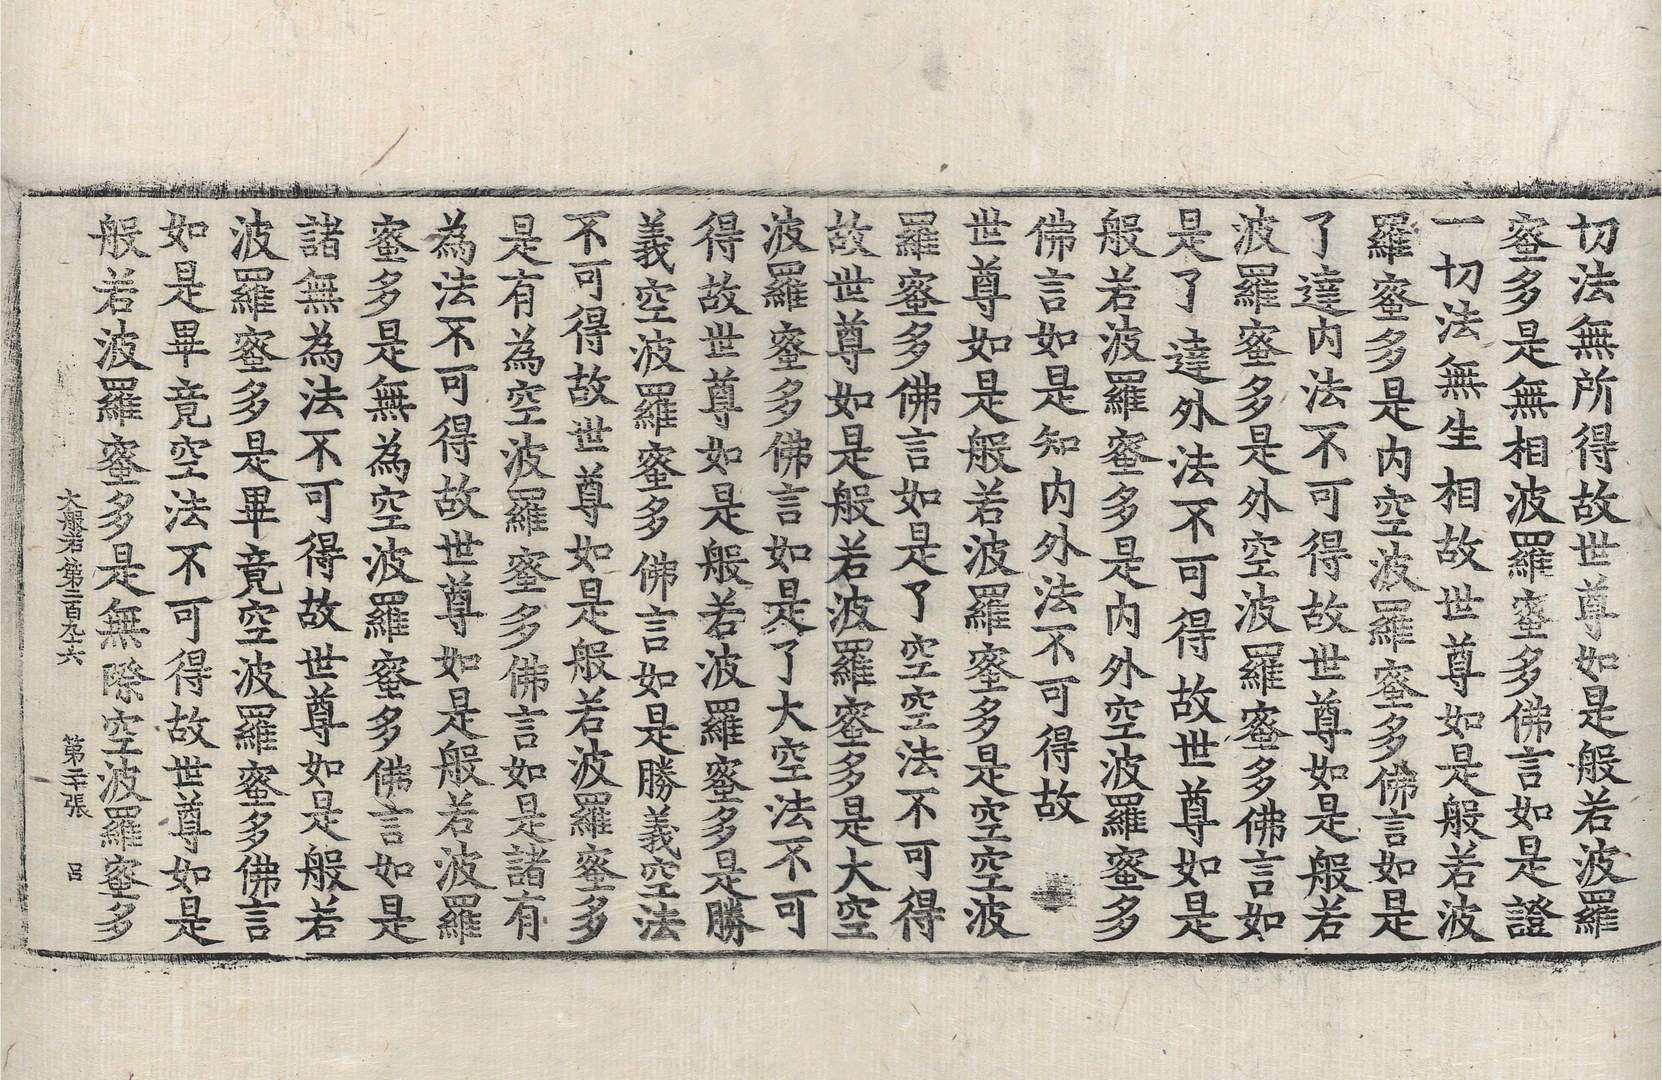 切法無所得故世尊如是般若波羅
蜜多是無相波羅蜜多佛言如是證
一切法無生相故世尊如是般若波
羅蜜多是内空波羅蜜多佛言如是
了達内法不可得故世尊如是般若
波羅蜜多是外空波羅蜜多佛言如
是了達外法不可得故世尊如是
般若波羅蜜多是内外空波羅蜜多
佛言如是知内外法不可得故
世尊如是般若波羅蜜多是空空波
羅蜜多佛言如是了空空法不可得
故世尊如是般若波羅蜜多是大空
波羅蜜多佛言如是了大空法不可
得故世尊如是般若波羅蜜多是勝
義空波羅蜜多佛言如是勝義空法
不可得故世尊如是般若波羅蜜多
是有為空波羅蜜多佛言如是諸有
為法不可得故世尊如是般若波羅
蜜多是無為空波羅蜜多佛言如是
諸無為法不可得故世尊如是般若
波羅蜜多是畢竟空波羅蜜多佛言
如是畢竟空法不可得故世尊如是
般若波羅蜜多是無際空波羅蜜多
大般若経第二百九十六　第二十張　呂